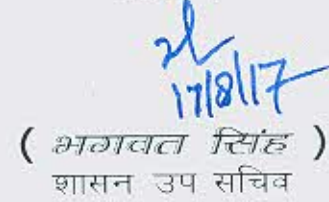 17/8/17
( भगवत सिंह )
शासन उप सचिव